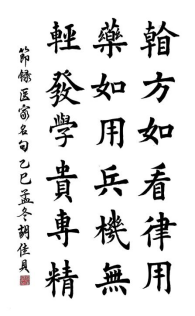 翰方如看律用
藥如用兵機無
輕發學貴專精
節錄医家名句乙巳孟冬胡佳貝